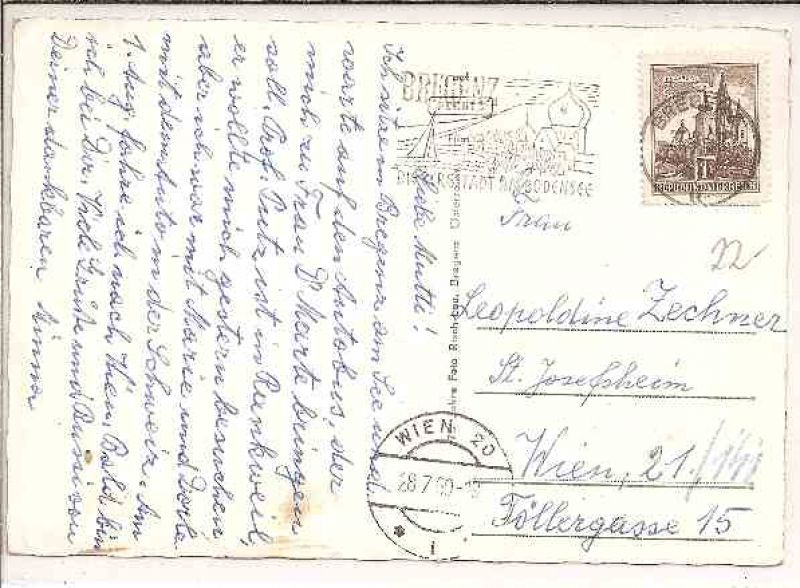 Liebe Mutti!
Ich sitze in Bregenz am See und
warte auf den Autobus, der
mich zu Frau Dr Marte bringen
soll. Prof. Putz ist in Rankweil,
er wollte mich gestern besuchen
aber ich war mit Marie und Dorle
mit dem Auto in der Schweiz. Am
1. Aug. fahre ich nach Wien. Bald bin
ich bei Dir. Viele Grüße und Bussi von
Deiner dankbaren Minna
BREGENZ
DIE FESTSTADT AM BODENSEE
REPUBLIK ÖSTERREICH
Foto Risch-Lau, Bregenz
Frau
Leopoldine Zechner
St. Josefsheim
Wien, 21/141
Töllergasse 15
WIEN 20
28.7.60